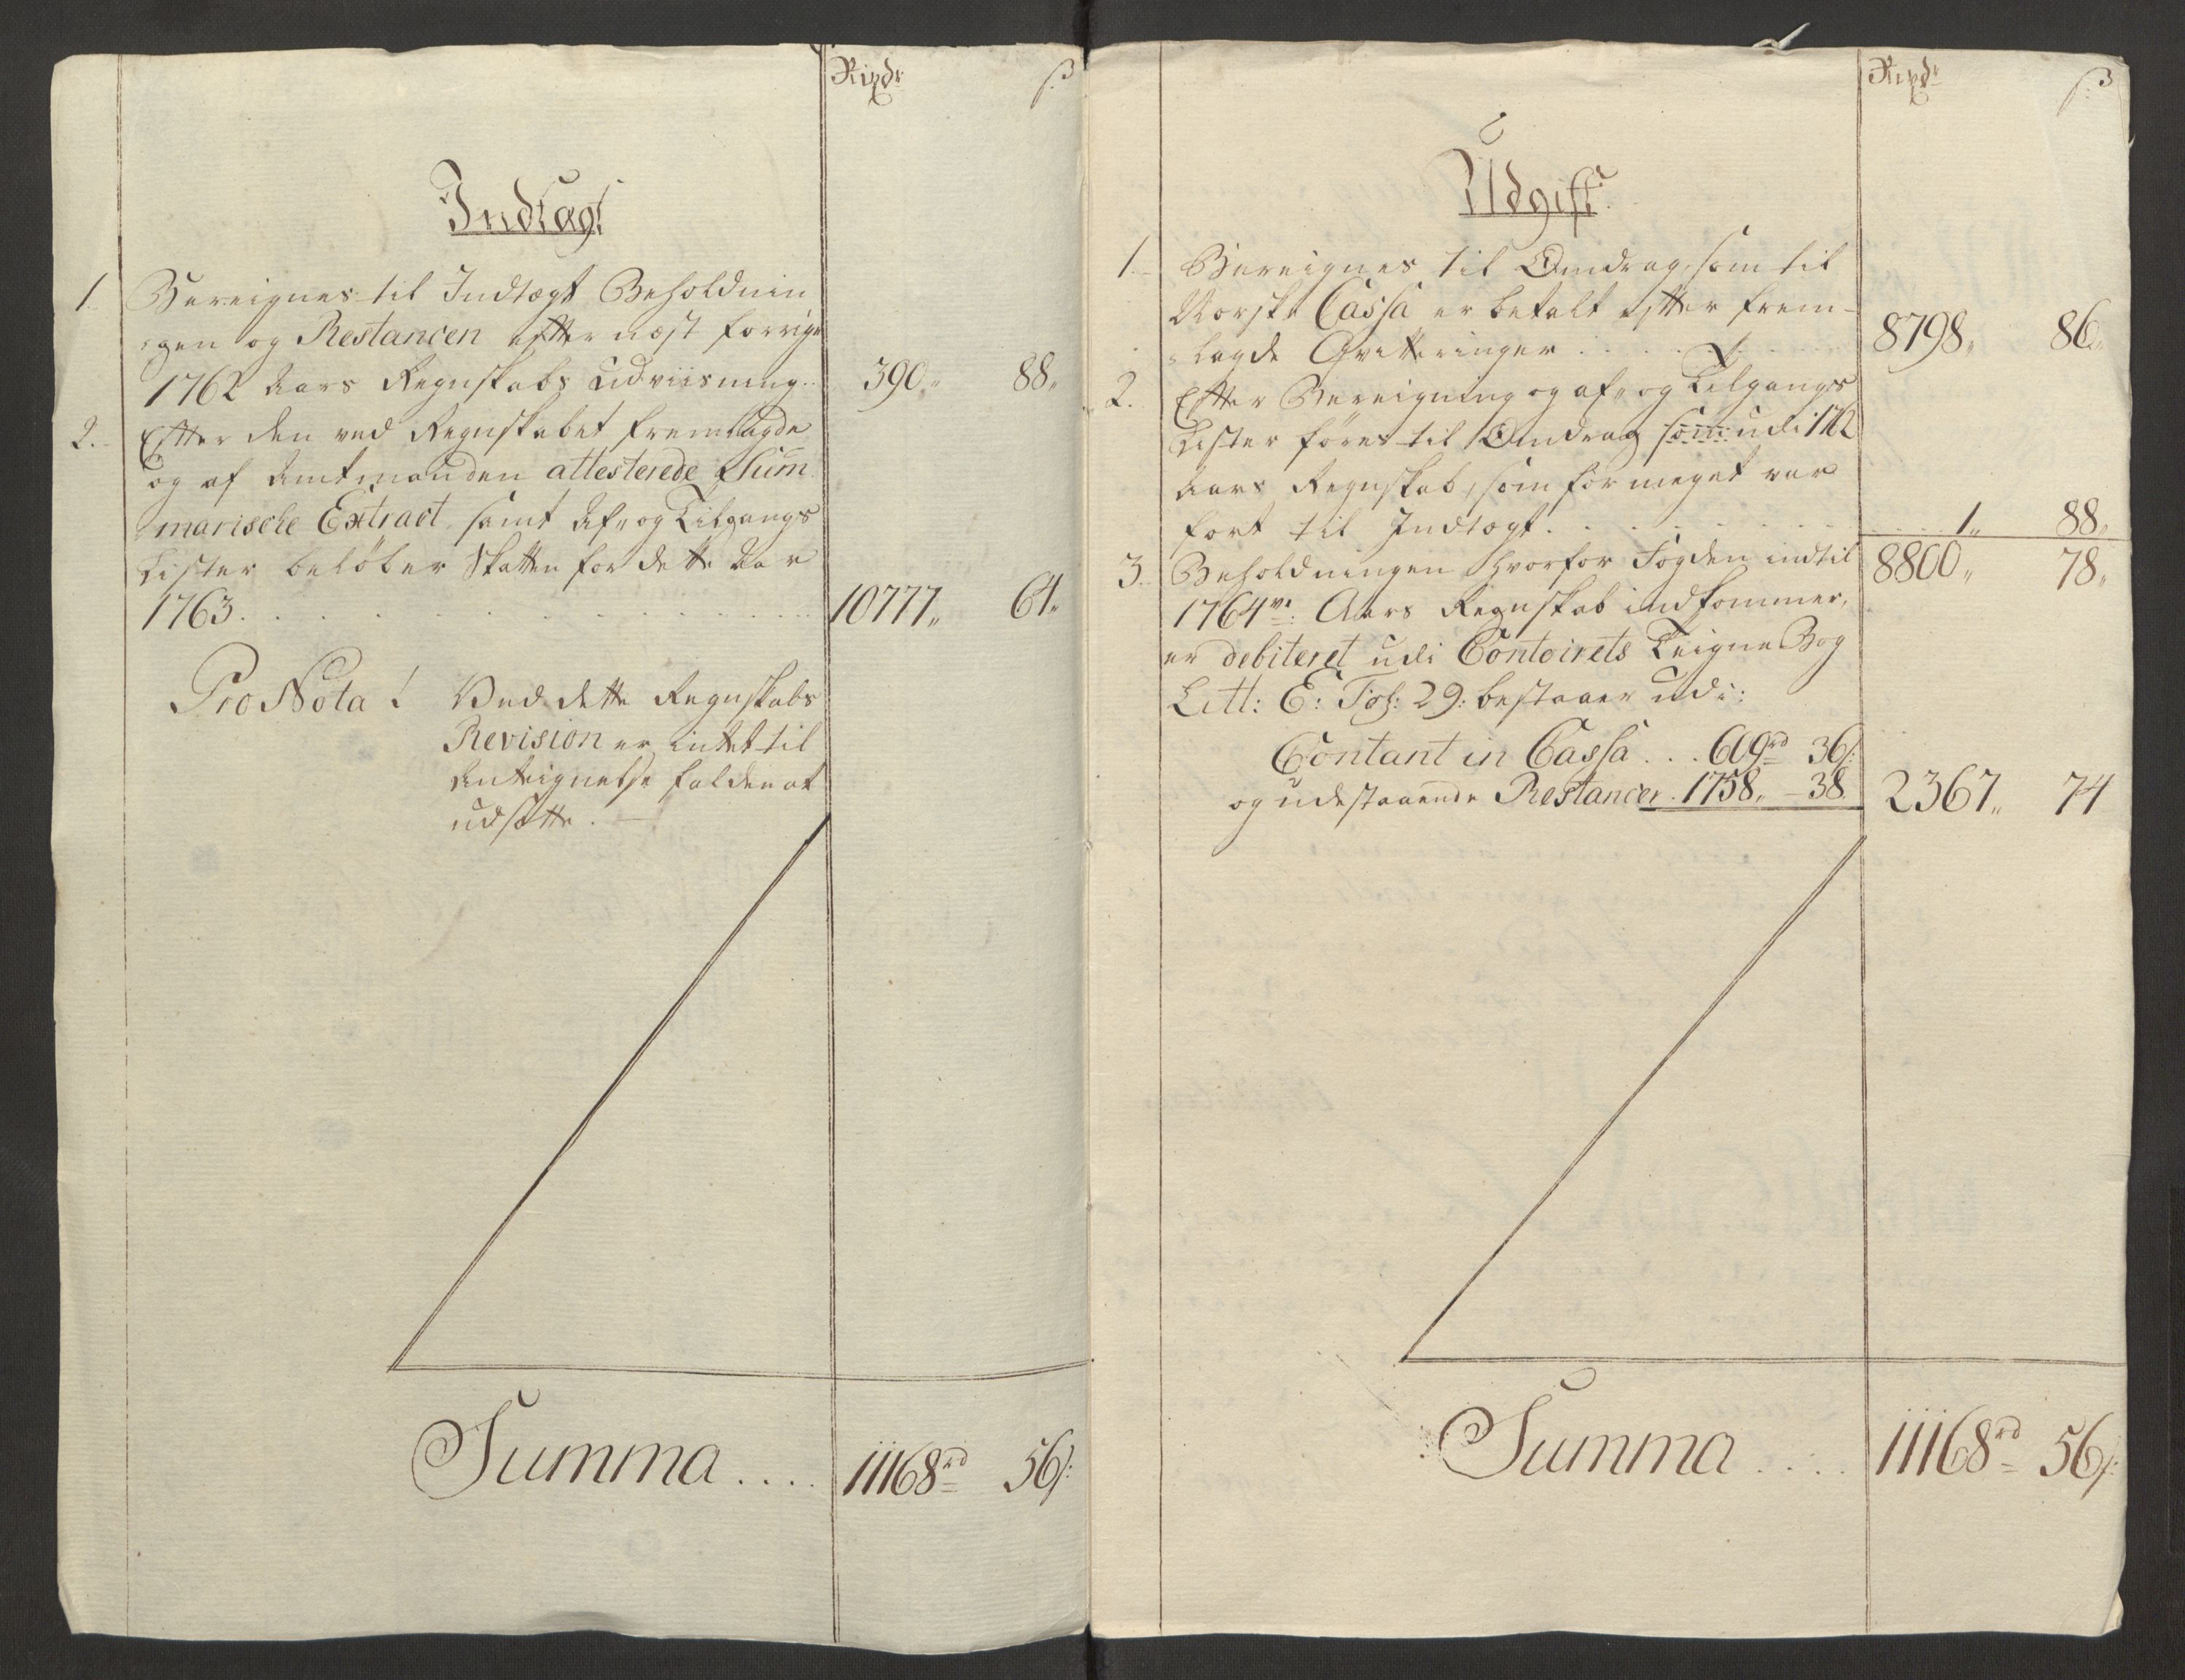 Rixdr ß
Indtægt
1. Bereignes til Indtægt Beholdnin
gen og Restancen efter næst forrige
1762 Aars Regnskabs Udviisning.. 390„ 88„
2. Efter den ved Regnskabet fremlagde
og af Amtmanden attesterede Sum
marische Extract, samt Af„ og Tilgangs
Lister beløber Skatten for dette Aar
1763. . . . . . . . . 10777„ 64„
Pro Nota! Ved dette Regnskabs
Revision er intet til
Anteignelse falden at
udsætte.
Summa .... 11168rd 56ß:
Rixdr ß
Udgift
1. Bereignes til Omdrag, som til
Norske Cassa er betalt efter frem-
lagde Qvitteringer . . . . . 8798„ 86„
2. Efter Bereigning og af„ og Tilgangs
Lister føres til Omdrag som udi 1762
Aars Regnskab, som for meget var
ført til Indtægt. . . . . . . 1„ 88„
8800„ 78„
3. Beholdningen hvorfor Fogden indtil
1764ve: Aars Regnskab indkommer,
er debiteret udi Contoirets Teigne Bog
Litt: E: Fol: 29: bestaaer udi:
Contant in Cassa . . . 609rd 36ß:
og udestaaende Restancer . 1758„ - 38. 2367„ 74
Summa .... 11168rd 56ß: